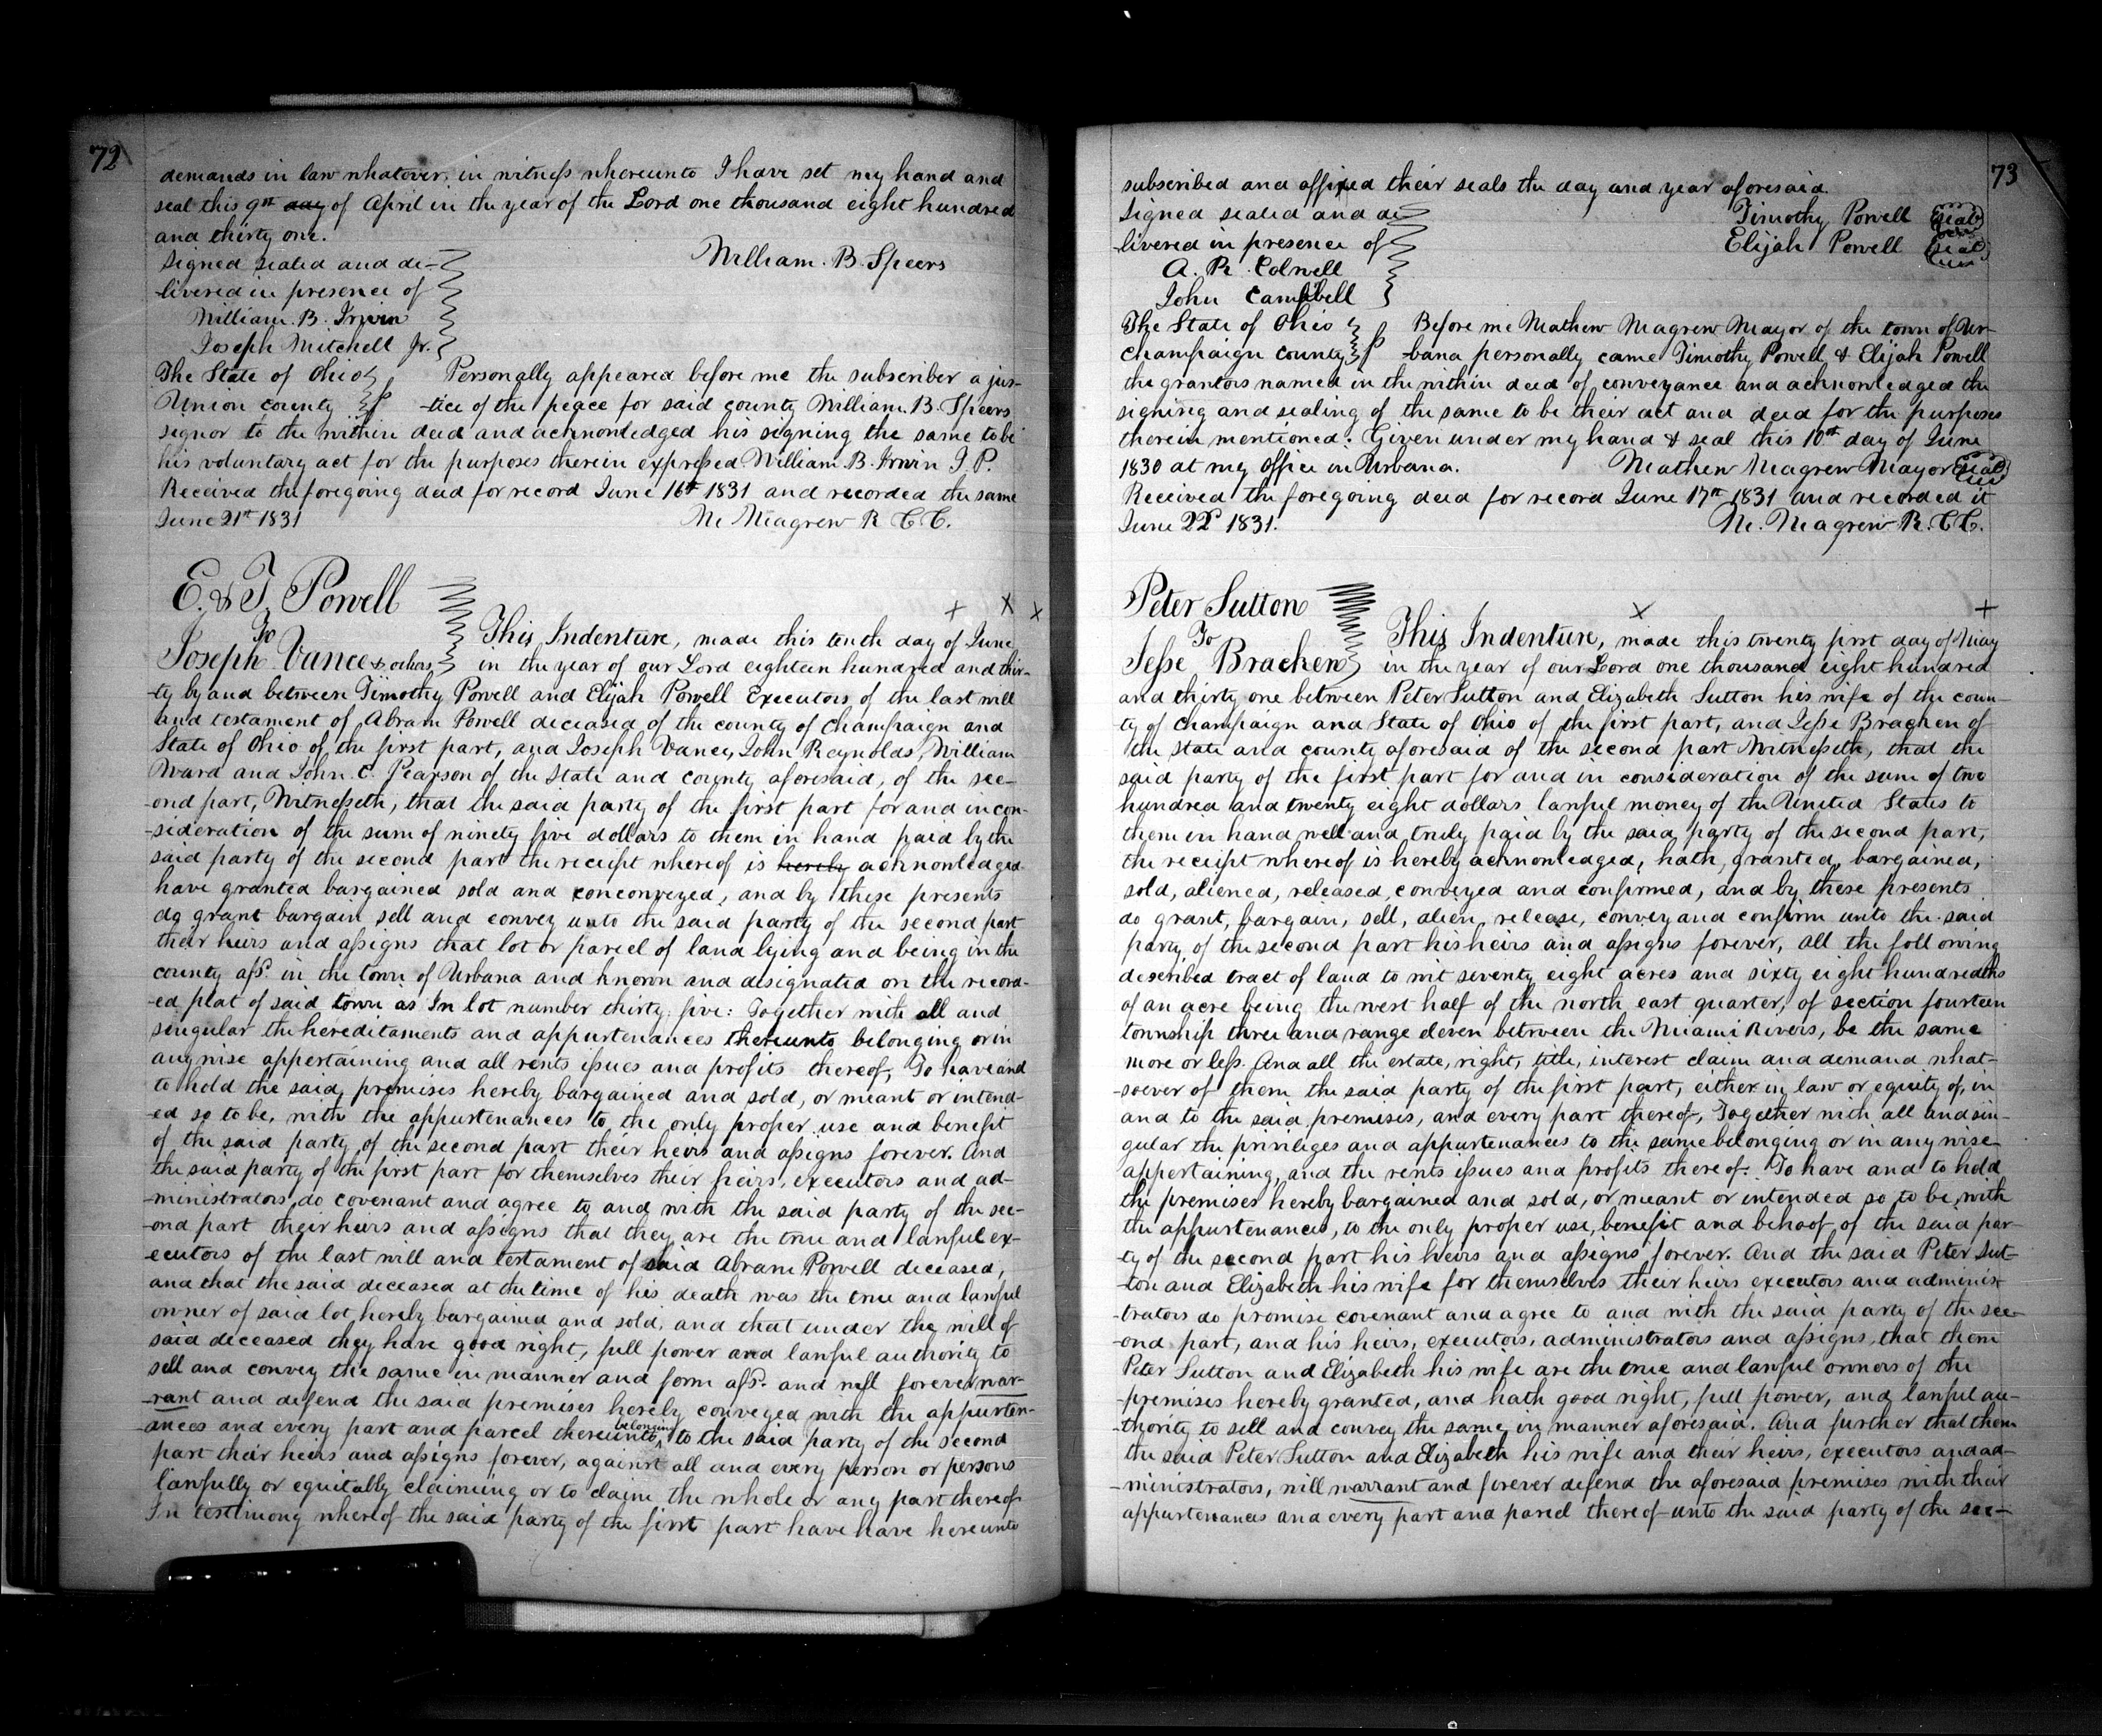 72
demands in law whatever, in witness whereunto I have set my hand and
seal this 9th day of April in the year of the Lord one thousand eight hundred
and thirty one.
Signed sealed and de-
William. B. Speers
livered in presence of
William. B. Irwin
Joseph Mitchell Jr.
The State of Ohio Personally appeared before me the subscriber a jus-
Union county -tice of the peace for said county William. B. Speers
signor to the within deed and acknowledged his signing the same to be
his voluntary act for the purposes therein expressed William. B. Irwin J. P.
Received the foregoing deed for record June 16th 1831 and recorded the same
June 21st 1831 M Magrew R C C.
E. & T. Powell
To This Indenture, made this tenth day of June
Joseph Vance & others in the year of our Lord eighteen hundred and thir-
-ty by and between Timothy Powell and Elijah Powell Executors of the last will
and testament of Abram Powell deceased of the county of Champaign and
State of Ohio of the first part, and Joseph Vance, John Reynolds, William
Ward and John. C. Pearson of the State and county aforesaid, of the sec-
-ond part, Witnesseth, that the said party of the first part for and in con-
-sideration of the sum of ninety five dollars to them in hand paid by the
said party of the second part the receipt whereof is hereby acknowledged
have granted bargained sold and conconveyed, and by these presents
do grant bargain sell and convey unto the said party of the second part
their heirs and assigns that lot or parcel of land lying and being in the
county afsd. in the town of Urbana and known and designated on the record-
-ed plat of said town as In lot number thirty, five: Together with all and
singular the hereditaments and appurtenances thereunto belonging or in
anywise appertaining and all rents issues and profits thereof, To have and
to hold the said premises hereby bargained and sold, or meant or intend-
-ed so to be, with the appurtenances to the only proper use and benefit
of the said party of the second part their heirs and assigns forever. And
the said party of the first part for themselves their heirs, executors and ad-
-ministrators, do covenant and agree to and with the said party of the sec-
-ond part their heirs and assigns that they are the true and lawful ex-
-ecutors of the last will and testament of said Abram Powell deceased,
and that the said deceased at the time of his death was the true and lawful
owner of said lot hereby bargained and sold, and that under the will of
said deceased they have good right, full power and lawful authority to
sell and convey the same in manner and form afsd. and will forever war-
-rant and defend the said premises hereby conveyed with the appurten-
-ances and every part and parcel thereunto belonging to the said party of the second
part their heirs and assigns forever, against all and every person or persons
lawfully or equitably claiming or to claim the whole or any part thereof
In testimony whereof the said party of the first part have have hereunto
73
subscribed and affixed their seals the day and year aforesaid.
Signed sealed and de- Timothy Powell Seal
livered in presence of Elijah Powell Seal
A. R. Colwell
John Campbell
The State of Ohio Before me Mathew Magrew Mayor of the town of Ur-
Champaign county -bana personally came Timothy Powell & Elijah Powell
the grantors named in the within deed of conveyance and acknowledged the
signing and sealing of the same to be their act and deed for the purposes
therein mentioned. Given under my hand & seal this 10th day of June
1830 at my office in Urbana. Mathew Magrew Mayor Seal
Received the foregoing deed for record June 17th 1831 and recorded it
June 22d 1831. M. Magrew R. C C.
Peter Sutton
To This Indenture, made this twenty first day of May
Jesse Bracken in the year of our Lord one thousand eight hundred
and thirty one between Peter Sutton and Elizabeth Sutton his wife of the coun-
ty of Champaign and State of Ohio of the first part, and Jesse Bracken of
the State and county aforesaid of the second part Witnesseth, that the
said party of the first part for and in consideration of the sum of two
hundred and twenty eight dollars lawful money of the United States to
them in hand well and truly paid by the said party of the second part,
the receipt whereof is hereby acknowledged, hath, granted, bargained,
sold, aliened, released, conveyed and confirmed, and by these presents
do grant, bargain, sell, alien, release, convey and confirm unto the said
party, of the second part his heirs and assigns forever, all the following
described tract of land to wit seventy eight acres and sixty eight hundredths
of an acre being the west half of the north east quarter, of section fourteen
township three and range eleven between the Miami Rivers, be the same
more or less. And all the estate, right, title, interest claim and demand what-
-soever of them the said party of the first part, either in law or equity of, in
and to the said premises, and every part thereof, Together with all and sin-
gular the privileges and appurtenances to the same belonging or in any wise
appertaining, and the rents issues and profits thereof: To have and to hold
the premises hereby bargained and sold, or meant or intended so to be, with
the appurtenances, to the only proper use, benefit and behoof, of the said par-
-ty of the second part his heirs and assigns forever. And the said Peter Sut-
-ton and Elizabeth his wife for themselves their heirs executors and adminis-
-trators do promise covenant and agree to and with the said party of the sec-
-ond part, and his heirs, executors, administrators and assigns, that them
Peter Sutton and Elizabeth his wife are the true and lawful owners of the
premises hereby granted, and hath good right, full power, and lawful au-
-thority to sell and convey the same in manner aforesaid. And further that them
the said Peter Sutton and Elizabeth his wife and their heirs, executors and ad-
-ministrators, will warrant and forever defend the aforesaid premises with their
appurtenances and every part and parcel thereof unto the said party of the sec-